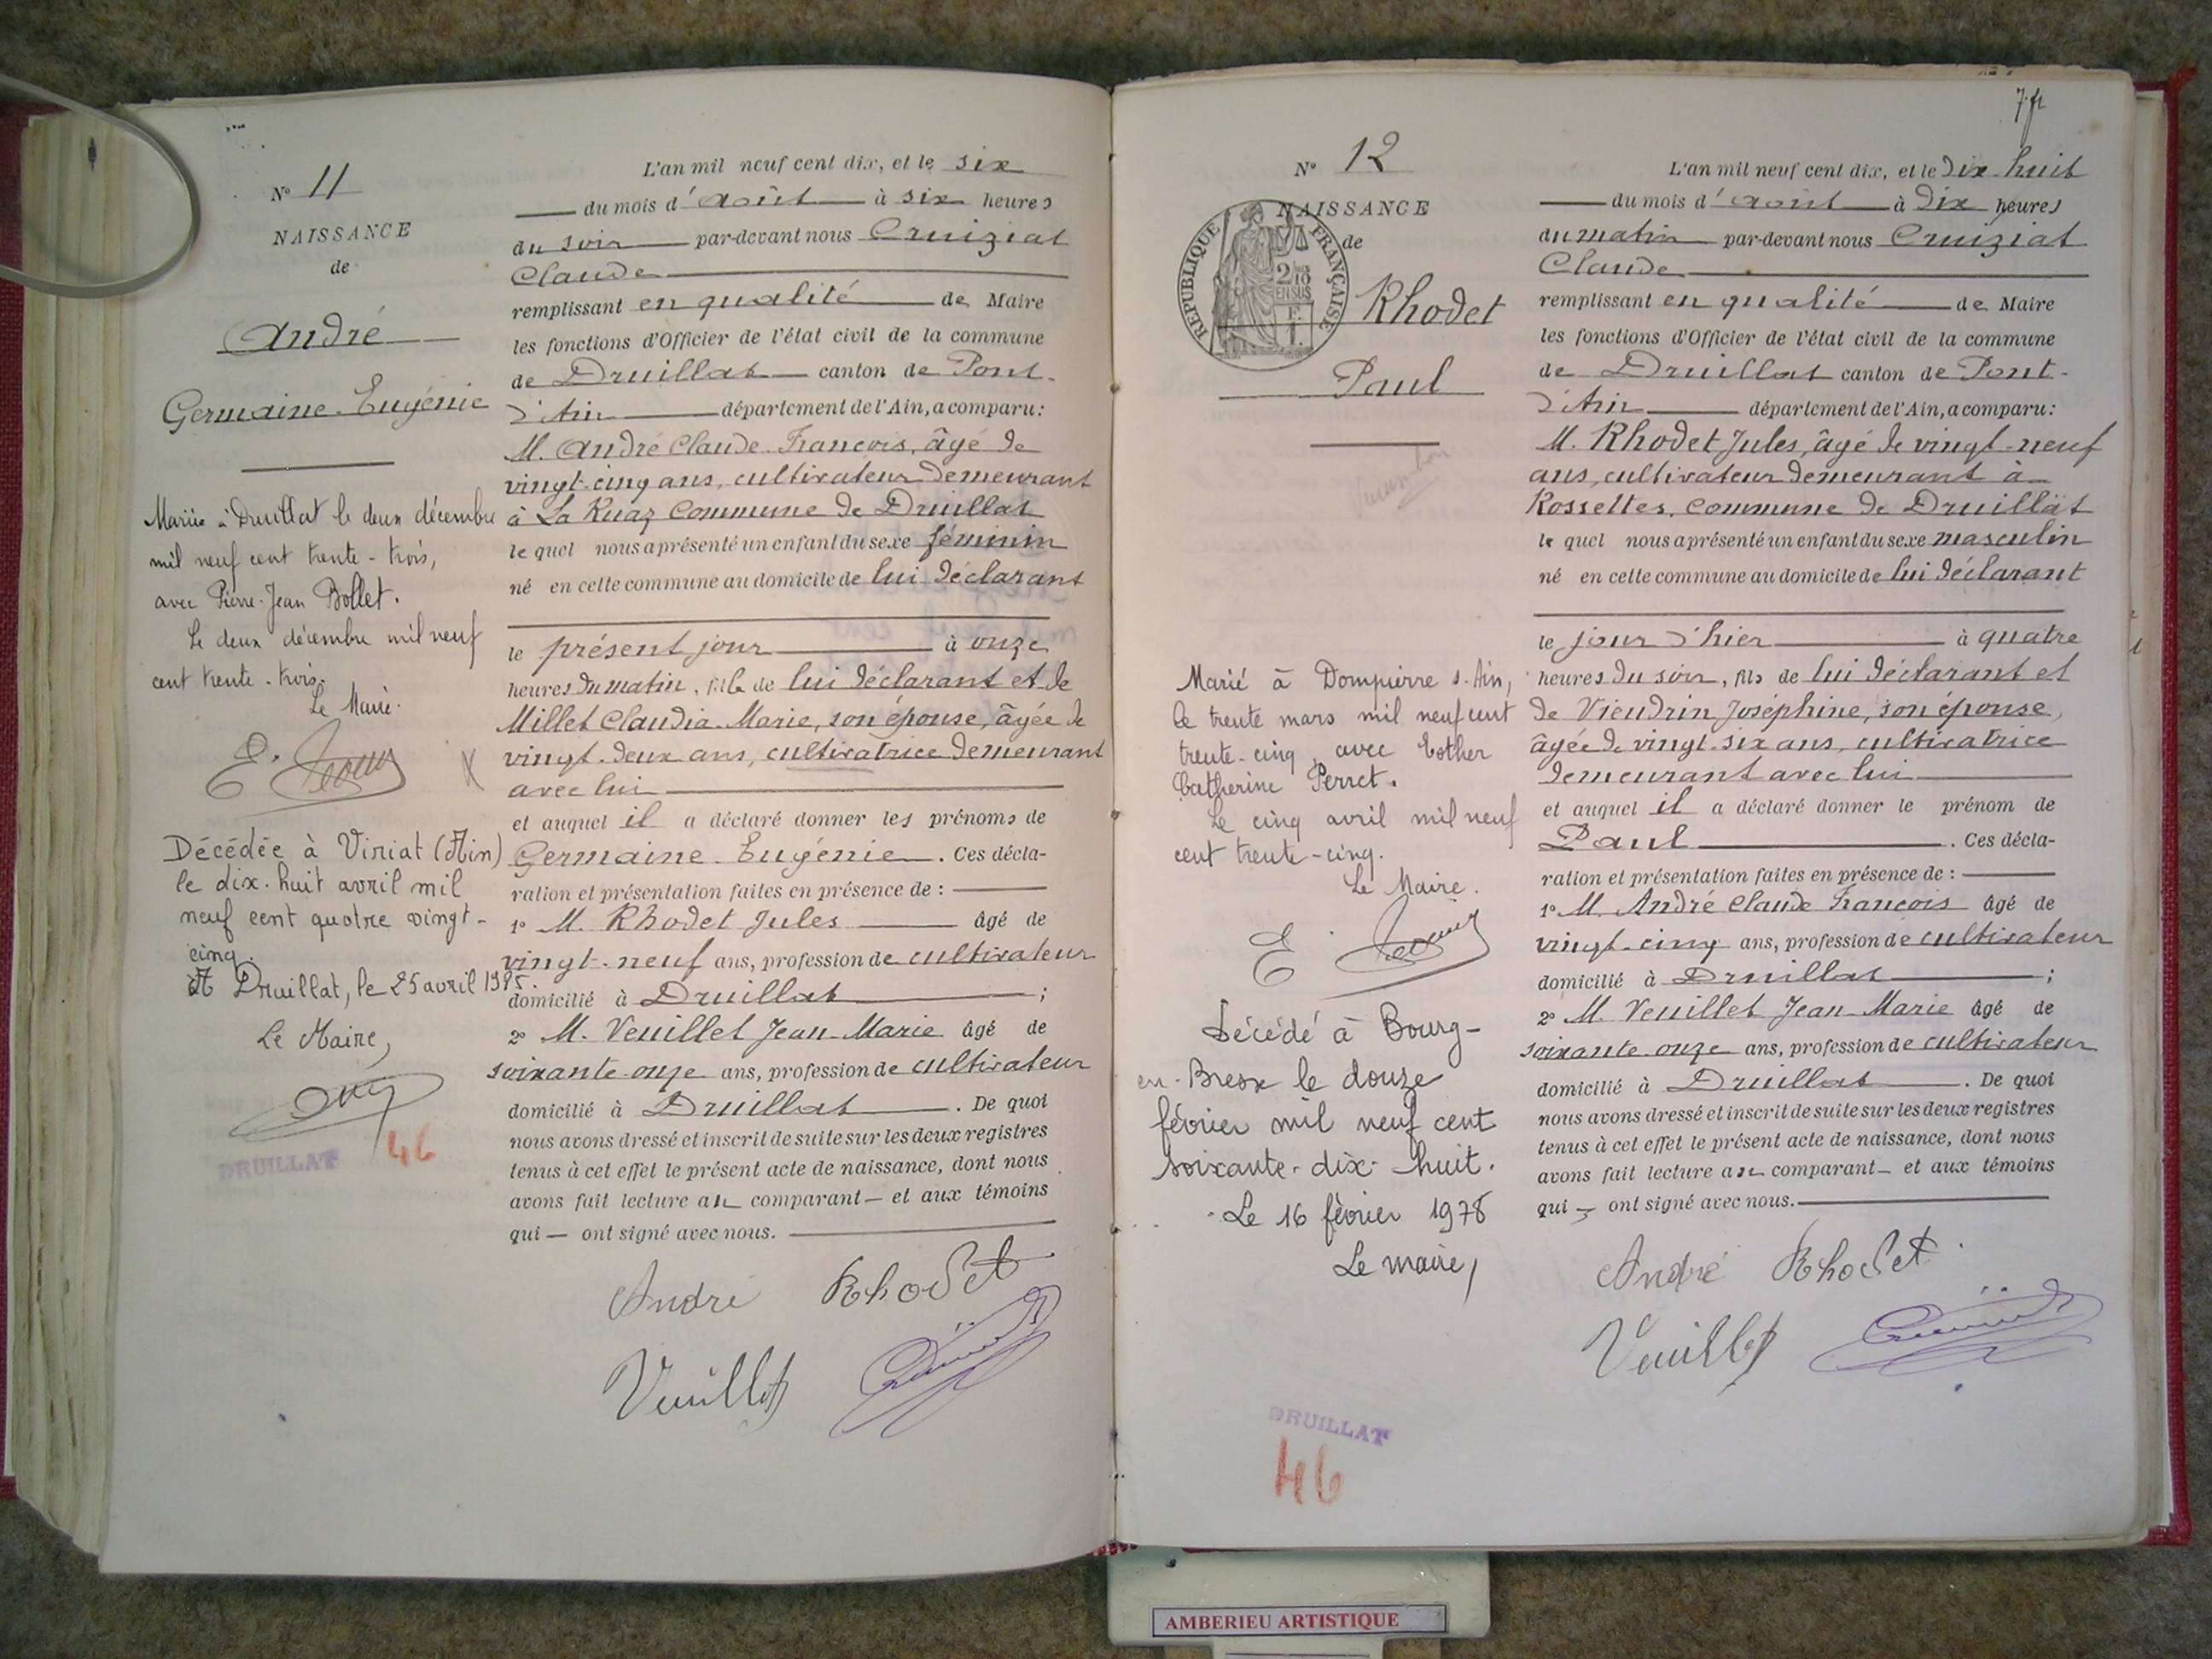 N° 11
NAISSANCE
de
André
Germaine-Eugénie
Mariée à Druillat le deux décembre
mil neuf cent trente-trois,
avec Pierre-Jean Bollet.
Le deux décembre mil neuf
cent trente-trois.
Le Maire.
Décédée à Viriat (Ain)
le dix-huit avril mil
neuf cent quatre vingt-
cinq.
A Druillat, le 25 avril 1985.
Le Maire,
DRUILLAT
46
L'an mil neuf cent dix, et le six
du mois d'août à six heures
du soir par-devant nous Cruiziat
Claude
remplissant en qualité de Maire
les fonctions d'Officier de l'état civil de la commune
de Druillat canton de Pont-
d'Ain département de l'Ain, a comparu:
M. André Claude-François, âgé de
vingt-cinq ans, cultivateur demeurant
à La Ruaz Commune de Druillat
le quel nous a présenté un enfant du sexe féminin
né en cette commune au domicile de lui déclarant
le présent jour à onze
heures du matin, fille de lui déclarant et de
Millet Claudia-Marie, son épouse, âgée de
vingt-deux ans, cultivatrice demeurant
avec lui
et auquel il a déclaré donner les prénoms de
Germaine-Eugénie. Ces décla-
ration et présentation faites en présence de :
1° M. Rhodet Jules âgé de
vingt-neuf ans, profession de cultivateur
domicilié à Druillat ;
2° M. Veuillet Jean-Marie âgé de
soixante-onze ans, profession de cultivateur
domicilié à Druillat. De quoi
nous avons dressé et inscrit de suite sur les deux registres
tenus à cet effet le présent acte de naissance, dont nous
avons fait lecture au comparant — et aux témoins
qui — ont signé avec nous.
André Rhodet
Veuillet
7 ft
N° 12
NAISSANCE
de
RÉPUBLIQUE FRANÇAISE
2/10
EN SUS
Rhodet
Paul
Marié à Dompierre s. Ain,
le trente mars mil neuf cent
trente-cinq, avec Esther
Catherine Perret.
Le cinq avril mil neuf
cent trente-cinq.
Le Maire.
Décédé à Bourg-
en-Bresse le douze
février mil neuf cent
soixante-dix-huit.
Le 16 février 1978
Le maire,
DRUILLAT
46
L'an mil neuf cent dix, et le dix huit
du mois d'août à dix heures
du matin par-devant nous Cruiziat
Claude
remplissant en qualité de Maire
les fonctions d'Officier de l'état civil de la commune
de Druillat canton de Pont-
d'Ain département de l'Ain, a comparu:
M. Rhodet Jules, âgé de vingt-neuf
ans, cultivateur demeurant à
Rossettes, commune de Druillat
le quel nous a présenté un enfant du sexe masculin
né en cette commune au domicile de lui déclarant
le jour d'hier à quatre
heures du soir, fils de lui déclarant et
de Vieudrin Joséphine, son épouse,
âgée de vingt-six ans, cultivatrice
demeurant avec lui
et auquel il a déclaré donner le prénom de
Paul. Ces décla-
ration et présentation faites en présence de :
1° M. André Claude François âgé de
vingt-cinq ans, profession de cultivateur
domicilié à Druillat ;
2° M. Veuillet Jean-Marie âgé de
soixante-onze ans, profession de cultivateur
domicilié à Druillat. De quoi
nous avons dressé et inscrit de suite sur les deux registres
tenus à cet effet le présent acte de naissance, dont nous
avons fait lecture au comparant — et aux témoins
qui — ont signé avec nous.
André Rhodet
Veuillet
AMBERIEU ARTISTIQUE